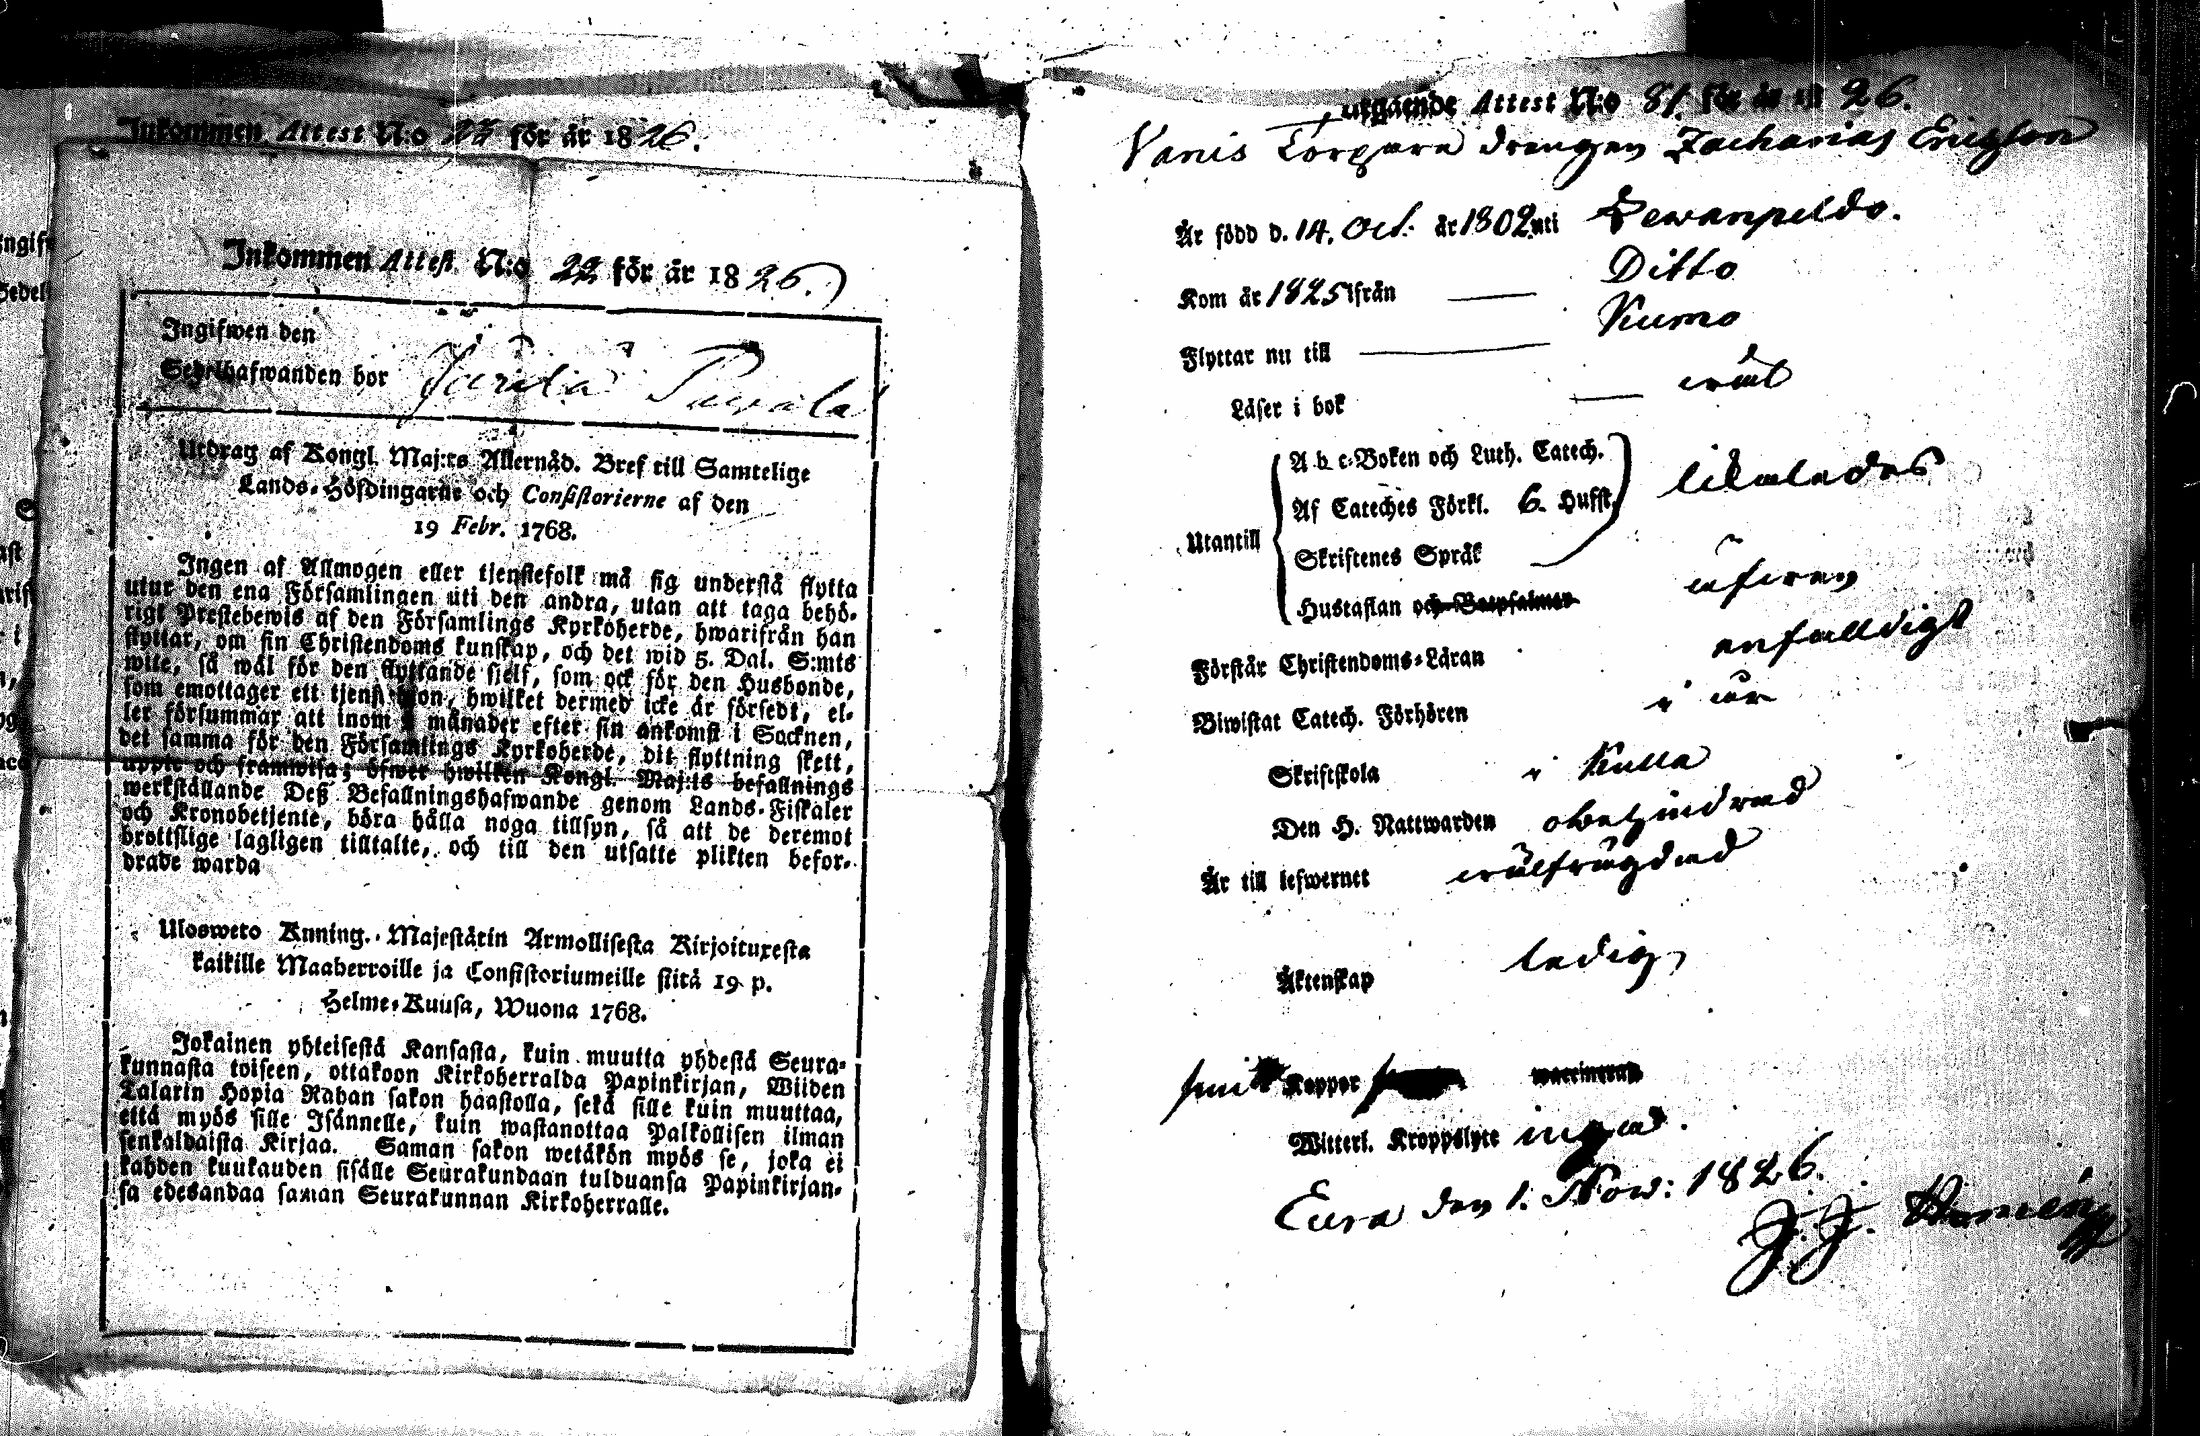 Inkommen Attest N:o 23 för år 1826.
Inkommen Attest N:o 22 för år 1826.)
Ingifwen den
Sedelhafwanden bor
Utdrag af Kongl. Maj:ts Allernåd. Bref till Samtelige
Lands-Höfdingarne och Consistorierne af den
19 Febr. 1768.
Ingen af Allmogen eller tjenstefolk må sig understå flytta
utur den ena Församlingen uti den andra, utan att taga behö-
rigt Prestebewis af den Församlings Kyrkoherde, hwarifrån han
flyttar, om sin Christendoms kunskap, och det wid 5. Dal. S:mts
wite, så wäl för den flyttande sjelf, som ock för den Husbonde,
som emottager ett tjenst hjon, hwilket dermed icke är försedt, el-
ler försummar att inom månader efter sin ankomst i Socknen,
det samma för den Församlings Kyrkoherde, dit flyttning skett,
uppte och framwisa; öfwer hwilken Kongl. Maj:ts befallnings
werkställande Deß Befallningshafwande genom Lands-Fiskaler
och Kronobetjente, böra hålla noga tillsyn, så att de deremot
brottslige lagligen tilltalte, och till den utsatte plikten befor-
drade warda
Ulosweto Knning. Majestätin Armollisesta Kirjoituxesta
kaikille Maaherroille ja Consistoriumeille siitä 19 p.
Helme-Kuusa, Wuona 1768.
Jokainen yhteisestä Kansasta, kuin muutta yhdestä Seura-
kunnasta toiseen, ottakoon Kirkoherralda Papinkirjan, Wiiden
Talarin Hopia Rahan sakon haastolla, sekä sille kuin muuttaa,
että myös sille Isännelle, kuin wastanottaa Palkollisen ilman
senkaldaista Kirjaa. Saman sakon wetäkön myös se, joka ei
kahden kuukauden sisälle Seurakundaan tulduansa Papinkirjan-
sa edesandaa saman Seurakunnan Kirkoherralle.
Utgående Attest N:o 81. för år 1826.
Torpare drengen Zacharias Ericsson
Är född d. 14. Oct. år 1802 uti
Kom år 1825 ifrån — Ditto
Flyttar nu till — Kumo
Läser i bok — wäl
Utantill
A b c-Boken och Luth. Catech.
Af Cateches Förkl. 6. Hufst.
likaledes
Skriftenes Språk
Hustaflan och Botpsalmer
äfwen
Förstår Christendoms-Läran enfalldigt
Biwistat Catech. Förhören i år
Skriftskola i Kulla
Den H. Nattwarden obehindrad
Är till lefwernet wälfrägdad
Äktenskap ledig
Koppor
Witterl. Kroppslyte ingad.
Eura den 1. Now: 1826.
J. J.